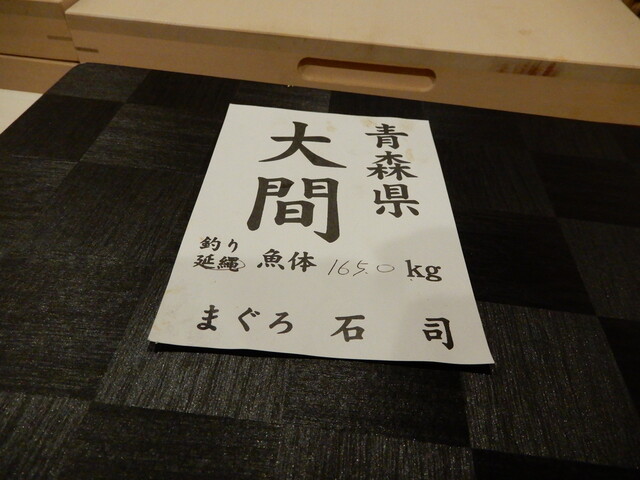 青森県
大間
釣り
延縄 魚体 165.0 kg
まぐろ 石司